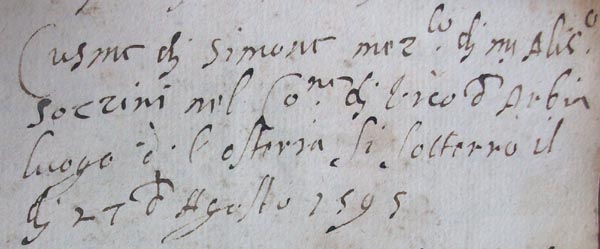 Cusme di Simone mez.lo di m Alis.o
Sozzini nel Co.ne di Vico d Arbia
luogo d. l osteria si sotterro il
di 27 d Agosto 1595